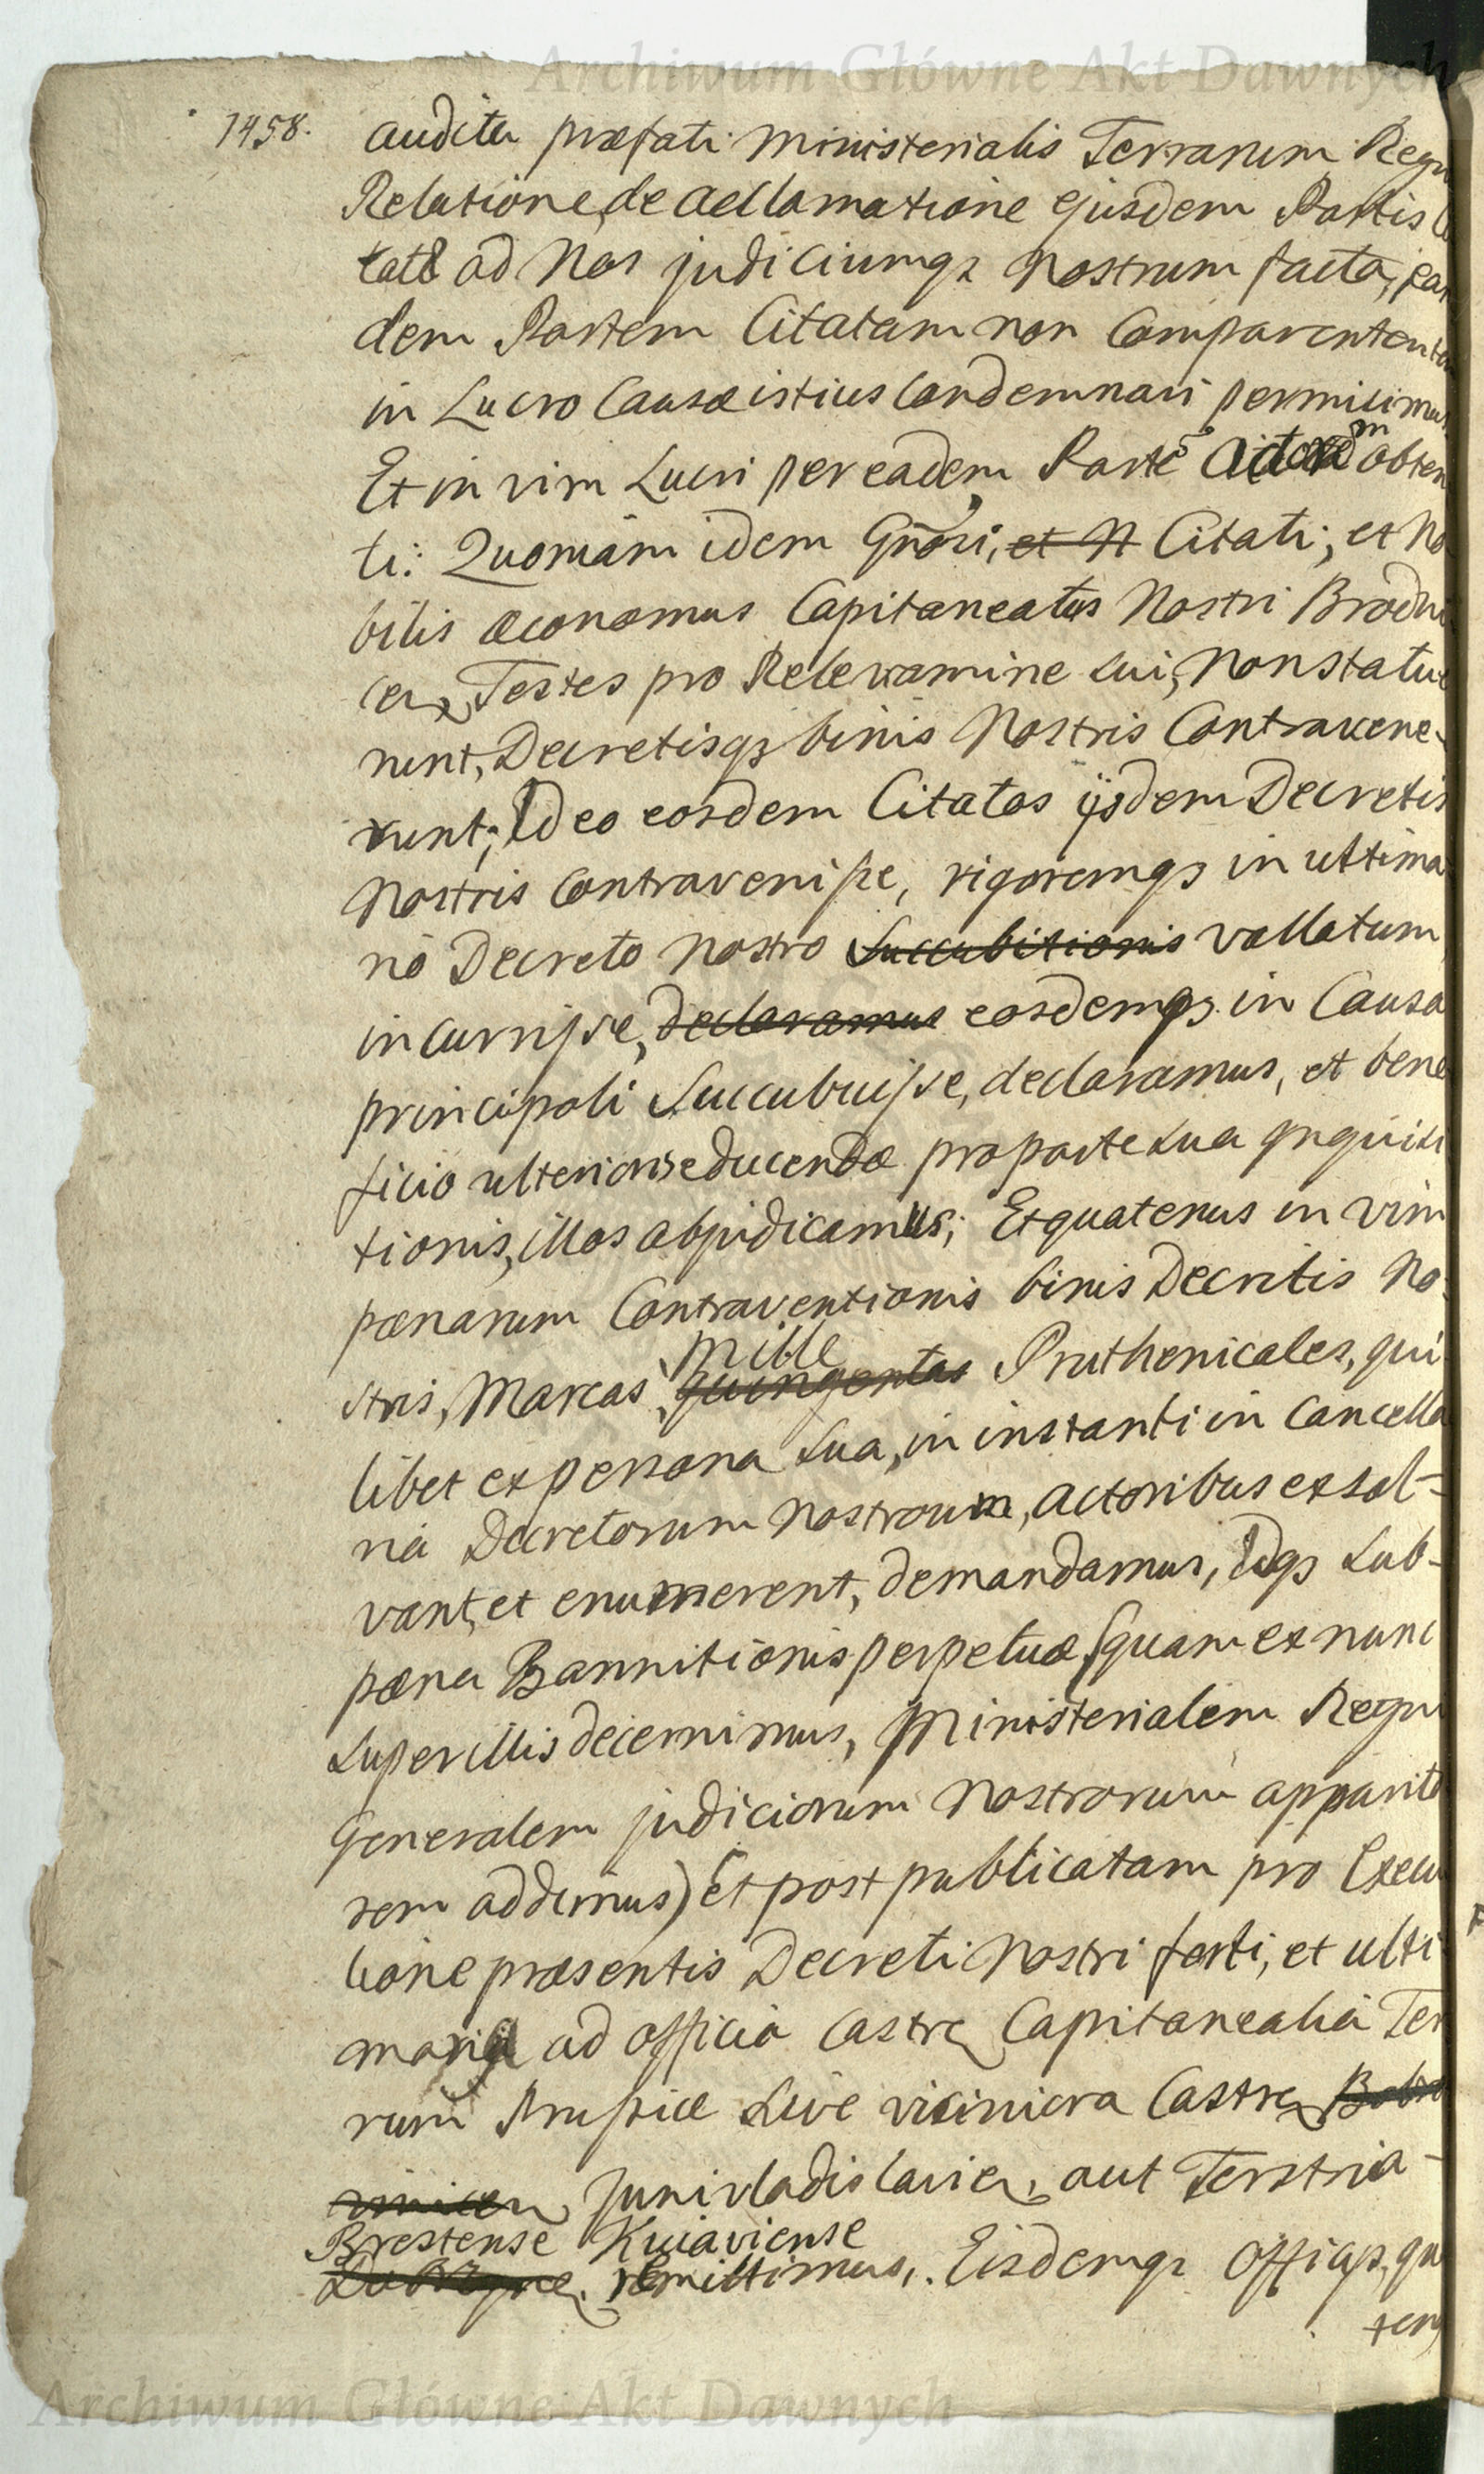 Archiwum Główne Akt Dawnych
1458.
audita præfati Ministerialis Terrarum Regn
Relatione, de acclamatione ejusdem Partis Ci
tatæ ad Nos judiciumq3 Nostrum facta, ean
dem Partem Citatam non Comparentem
in Lucro Causæ istius Condemnari permisimus.
Et in vim Lucri per eadem Parte Actorem obten
ti: Quoniam idem Gnōsi, et N Citati, et No
bilis œconomus Capitaneatus Nostri Brodni
cen, Testes pro Relevamine sui, Non statue
runt, Decretisq3 binis Nostris Contravene-
runt; Ideo eosdem Citatos ijsdem Decretis
Nostris Contravenisse, rigoremq3 in ultima
rio Decreto Nostro Succubitionis vallatum
incurrisse, declaramus eosdemq3 in Causa
principali Succubuisse, declaramus, et bene
ficio ulterioris educendæ pro parte sua Inquisi
tionis, illos abjudicamus; Et quatenus in vim
pœnarum Contraventionis binis Decretis No
stris, Marcas mille
quingentas Pruthenicales, qui
libet ex persona sua, in instanti in Cancella
ria Decretorum Nostrorum, Actoribus exsol-
vant, et enumerent, demandamus, Idq3 sub-
pœna Bannitionis perpetuæ, (quam ex nunc
super illis decernimus, Ministerialem Regni
Generalem judiciorum Nostrorum apparito
rem addimus) Et post publicatam pro Execu
tione præsentis Decreti Nostri ferti, et ulti
maria ad officia Castren Capitanealia Ter
rarum Prussiæ sive viciniora Castren Bobro
vnicen Junivladislavien, aut Terstria-
Brestense Kuiaviense
Dobrzynen, remittimus, Eisdemq3 Officijs, qua
tenus
Archiwum Główne Akt Dawnych